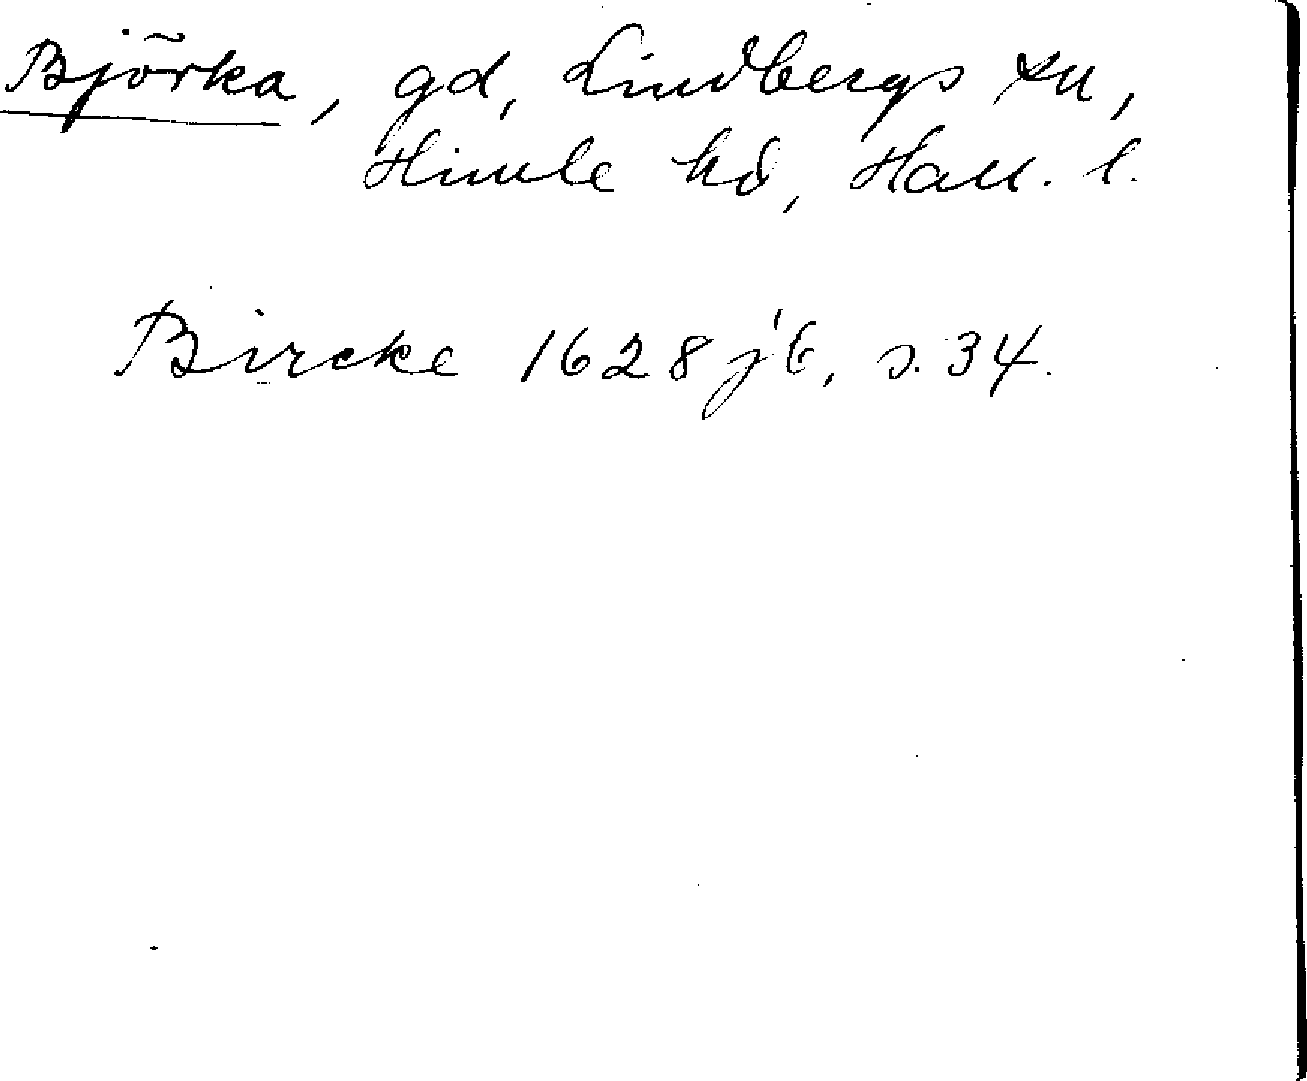 Björka, gd, Lindbergs sn,
Himle hd, Hall. l.
Bircke 1628 jb, s. 34.